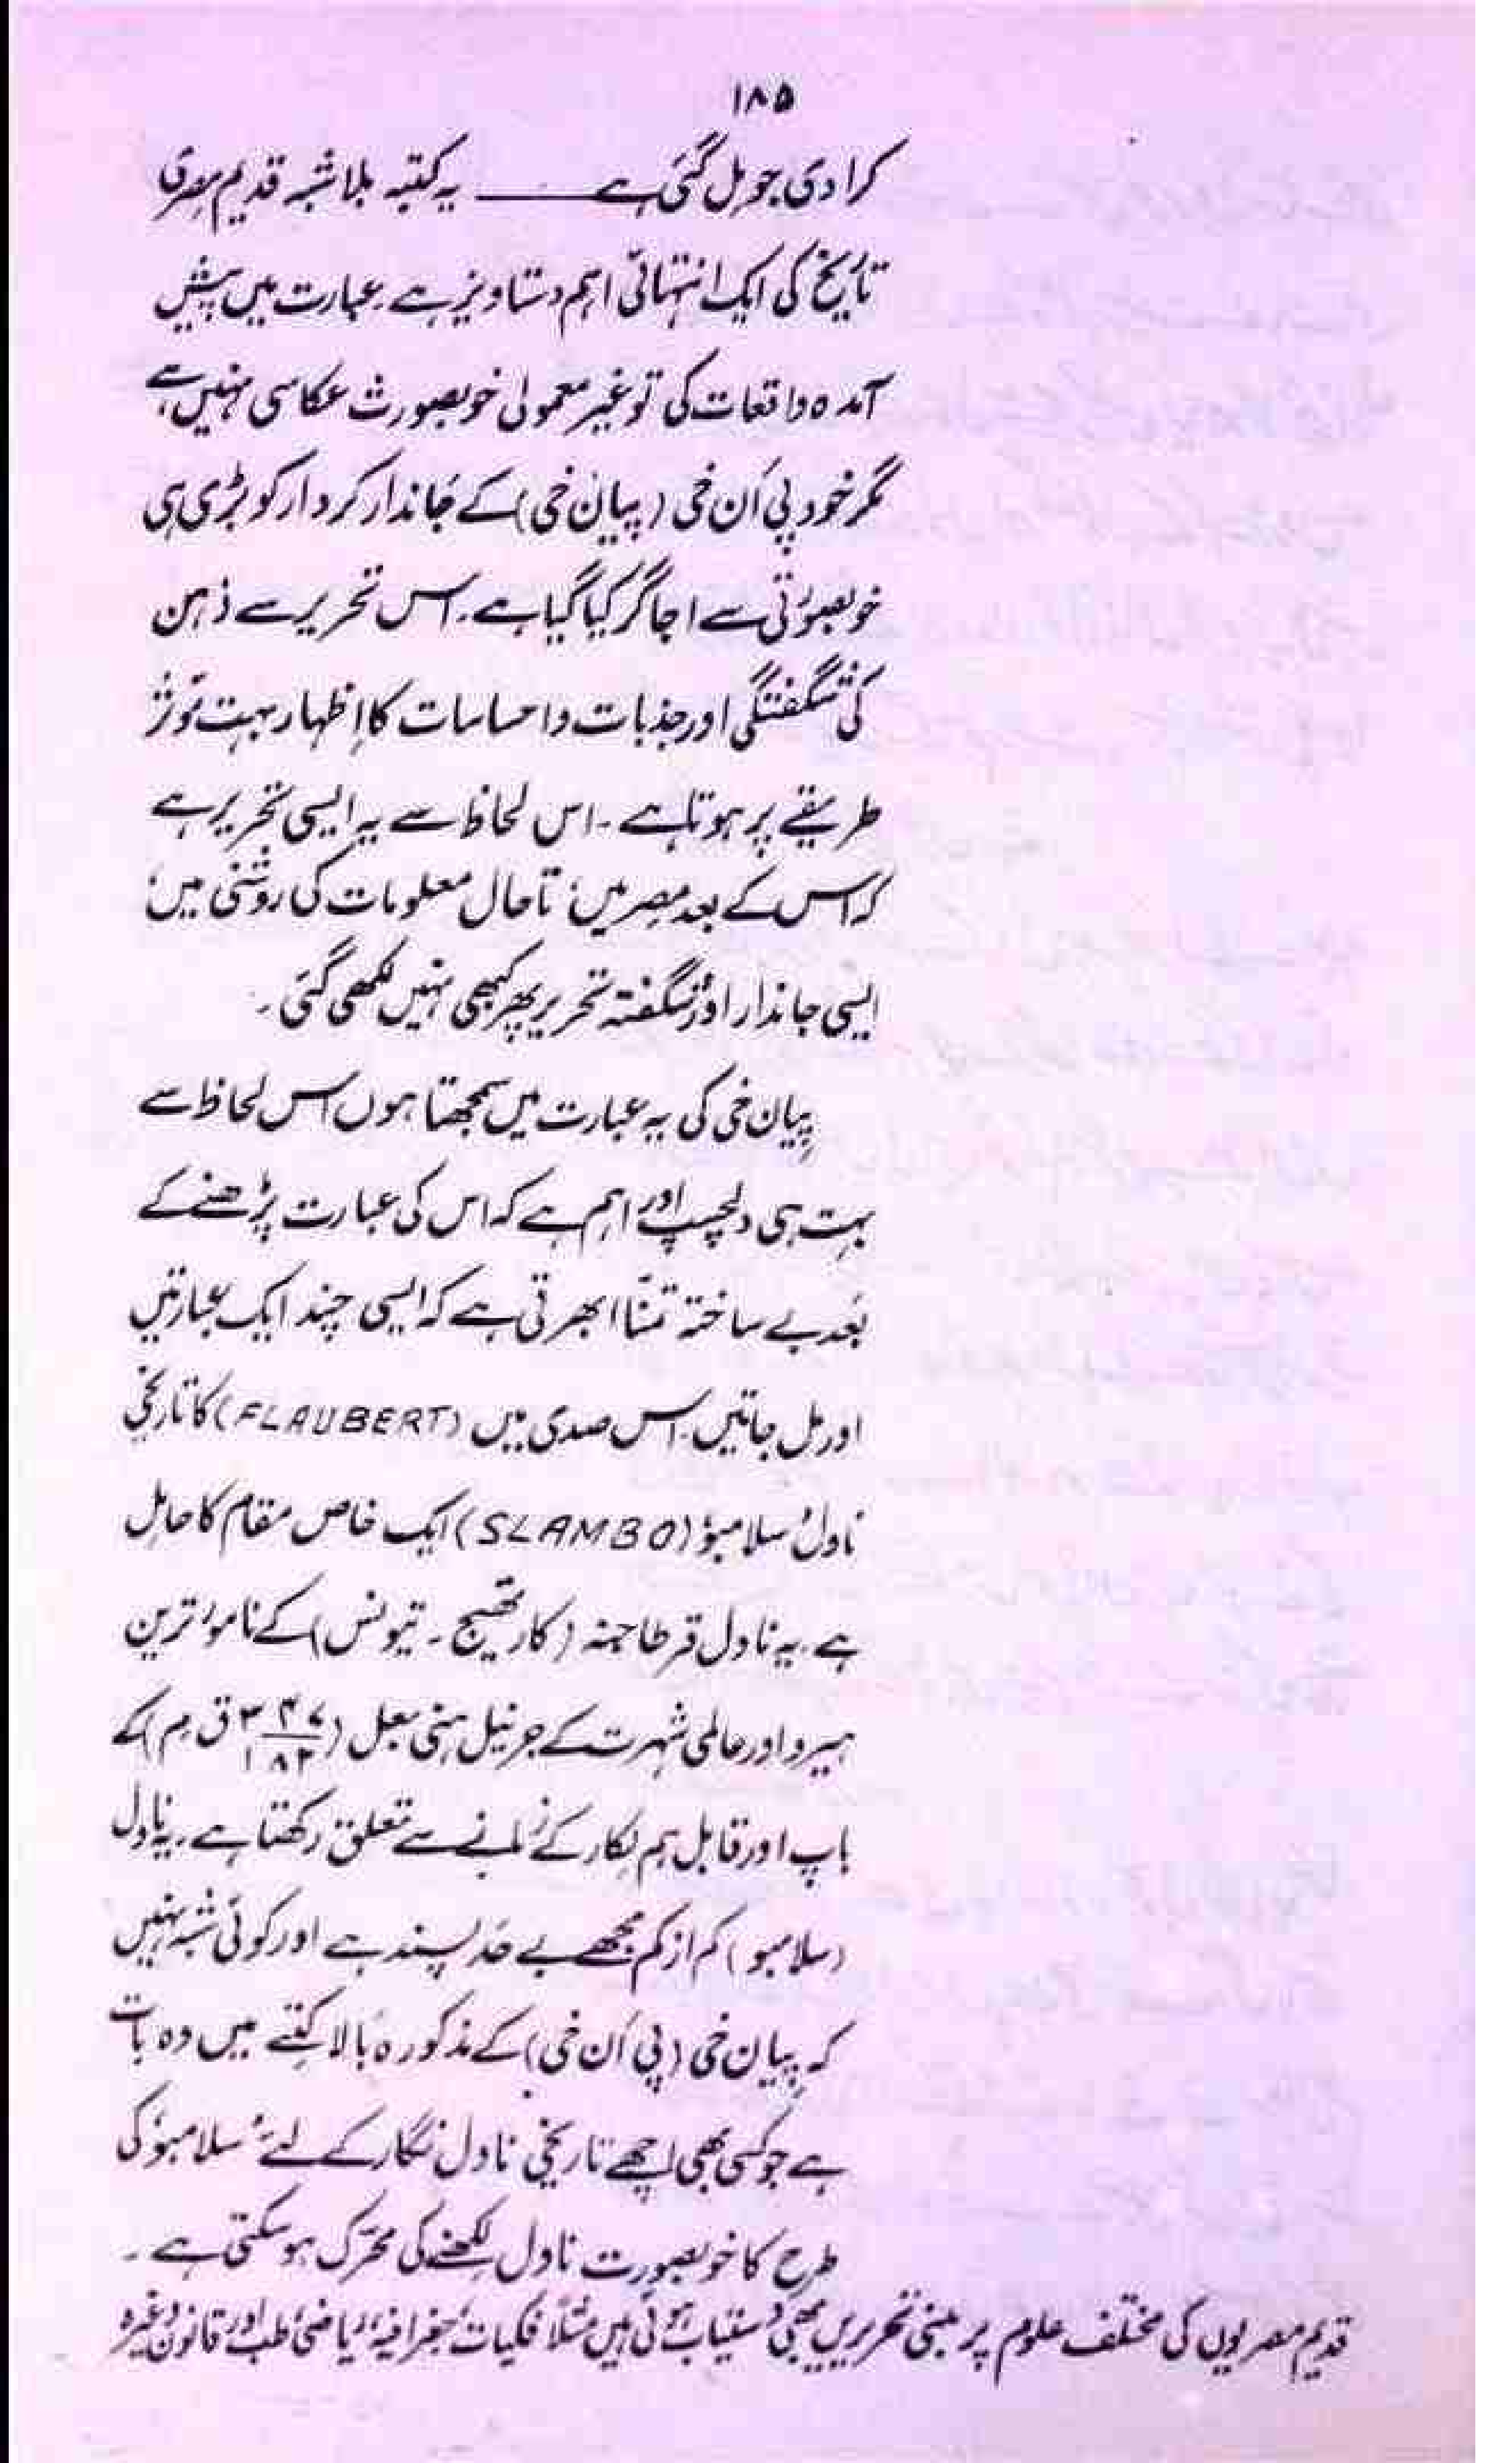 ۱۸۵
کرا دی جو مل گئی ہے ــــــ یہ کتبہ بلا شبہ قدیم مصری
تاریخ کی ایک انتہائی اہم دستاویز ہے۔ عبارت میں پیش
آمدہ واقعات کی تو غیر معمولی خوبصورت عکاسی نہیں ہے
مگر خود پی اَن خی (پیان خی) کے جاندار کردار کو بڑی ہی
خوبصورتی سے اجاگر کیا گیا ہے۔ اس تحریر سے ذہن
کی شگفتگی اور جذبات و احساسات کا اِظہار بہت مؤثر
طریقے پر ہوتا ہے۔ اس لحاظ سے یہ ایسی تحریر ہے
کہ اس کے بعد مصر میں، تاحال معلومات کی روشنی میں،
ایسی جاندار اور شگفتہ تحریر پھر کبھی نہیں لکھی گئی۔
پیان خی کی یہ عبارت میں سمجھتا ہوں اس لحاظ سے
بہت ہی دلچسپ اور اہم ہے کہ اس کی عبارت پڑھنے کے
بعد بے ساختہ تمنّا ابھرتی ہے کہ ایسی چند ایک عبارتیں
اور مل جاتیں۔ اس صدی میں (FLAUBERT) کا تاریخی
ناول ’سلامبو‘ (SLAMBO) ایک خاص مقام کا حامِل
ہے۔ یہ ناول قرطاجنہ (کارتھیج۔ تیونس) کے نامور ترین
ہیرو اور عالمی شہرت کے جرنیل ہنی بعل (۳۴۷/۱۸۲ ق م) کے
باپ اور قابل ہم لکار کے زمانے سے تعلق رکھتا ہے۔ یہ ناول
(سلامبو) کم از کم مجھے بے حد پسند ہے اور کوئی شبہ نہیں
کہ پیان خی (پی اَن خی) کے مذکورہ بالا کتبے میں وہ بات
ہے جو کسی بھی اچھے تاریخی ناول نگار کے لئے ’سلامبو‘ کی
طرح کا خوبصورت ناول لکھنے کی محرّک ہو سکتی ہے۔
قدیم مصریوں کی مختلف علوم پر مبنی تحریریں بھی دستیاب ہوئی ہیں مثلاً فلکیات، جغرافیہ، ریاضی، طب اور قانون وغیرہ